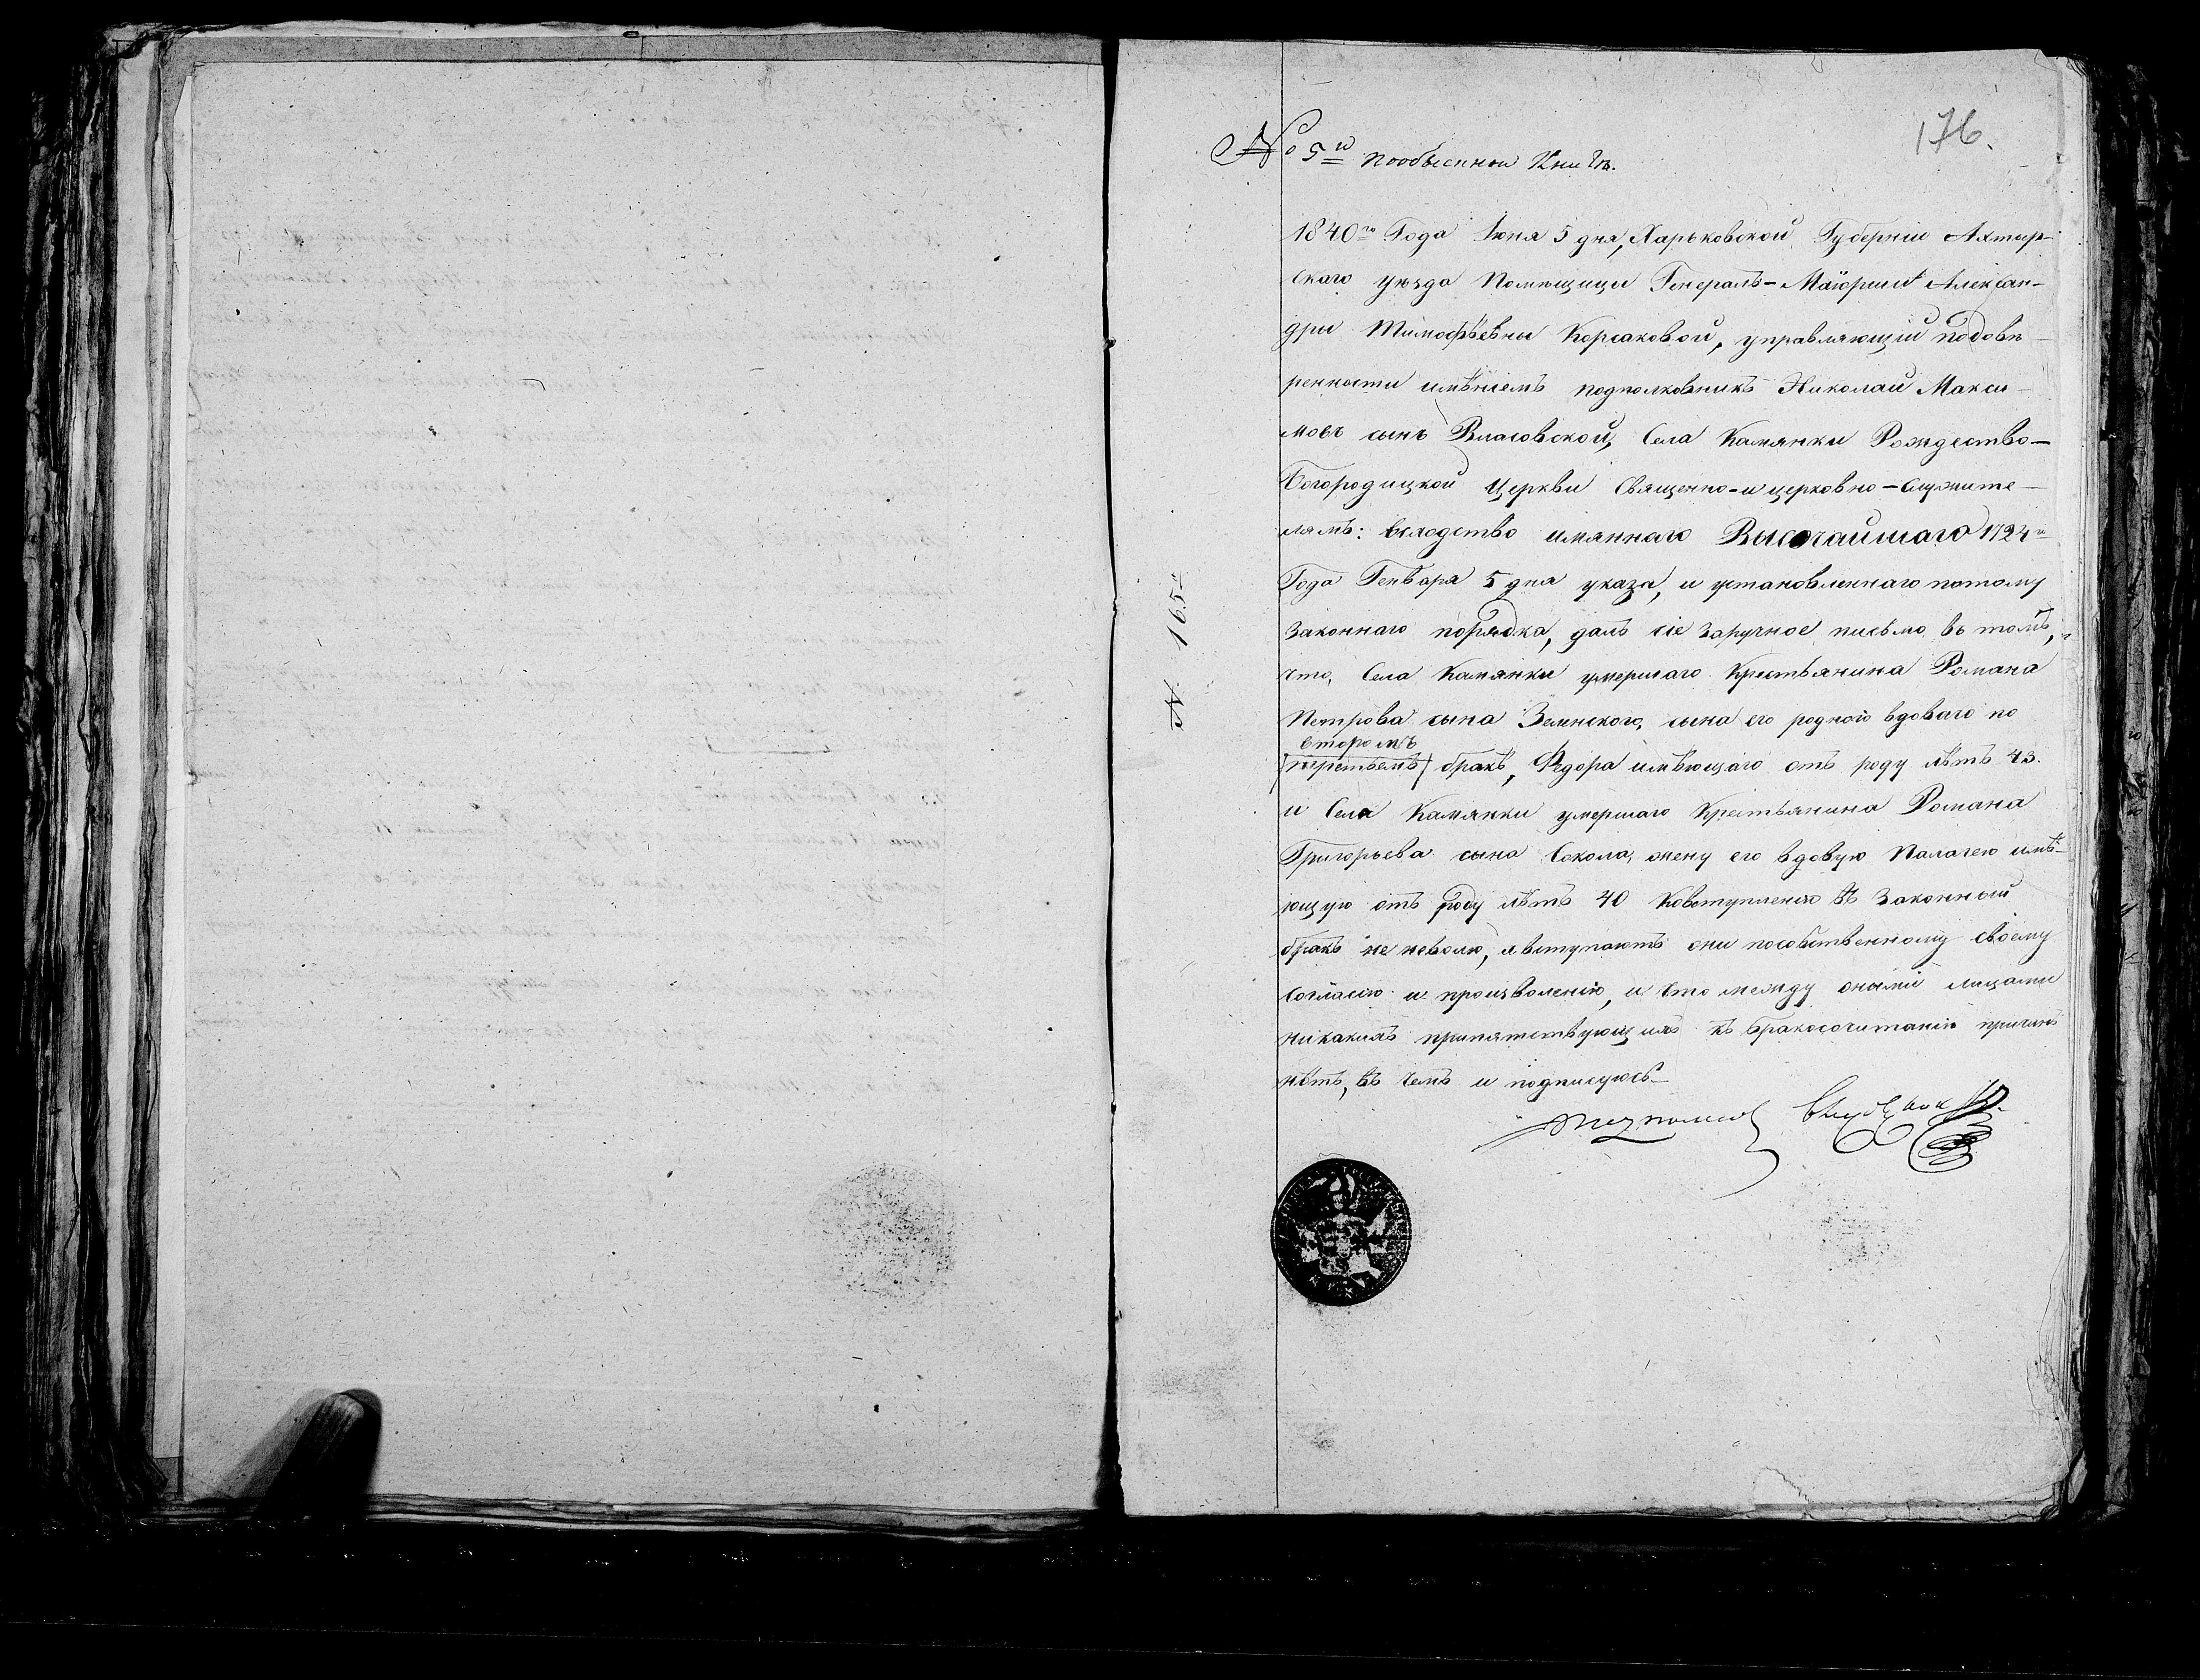 176.
№ 5й пообыскной Книгѣ.
1840го Года Іюня 5 дня, Харьковской Губерніи Ахтыр-
скаго уѣзда Помѣщицы Генералъ-Маіорши Алексан-
дры Тимофѣевны Корсаковой, управляющій подовѣ-
ренности имѣніемъ подполковникъ Николай Макси-
мовъ сынъ Власовской, Села Камянки Рождество-
Богородицкой Церкви Священно-и церковно-служите-
лямъ: вслѣдство имяннаго Высочайшаго 1724го
Года Генваря 5 дня указа, и установленнаго потому
Законнаго порядка, далъ сіе Заручное письмо въ томъ,
что, Села Камянки умершаго Крестьянина Романа
Петрова сына Земнского, сына его родного вдоваго по
второмъ
(третьемъ) бракѣ, Федора имѣющаго отъ роду лѣтъ 43.
и Села Камянки умершаго Крестьянина Романа
Григорьева сына Сокола, жену его вдовую Палагею имѣ-
ющую отъ роду лѣтъ 40 Ковступленію въ Законный
бракъ не неволю, а вступаютъ они пособственному своему
Согласію и произволенію, и что между оными лицами
никакихъ припятствующихъ къ бракосочитанію причинъ
нѣтъ, въ чемъ и подписуюсь
N 165й